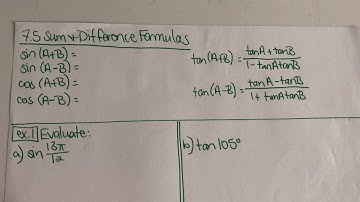 7.5 Sum & Difference Formulas
sin(A+B) =
sin(A-B) =
cos(A+B) =
cos(A-B) =
tan(A+B) = tanA + tanB / 1 - tanAtanB
tan(A-B) = tanA - tanB / 1 + tanAtanB
ex.1 Evaluate:
a) sin 13π/12
b) tan 105°